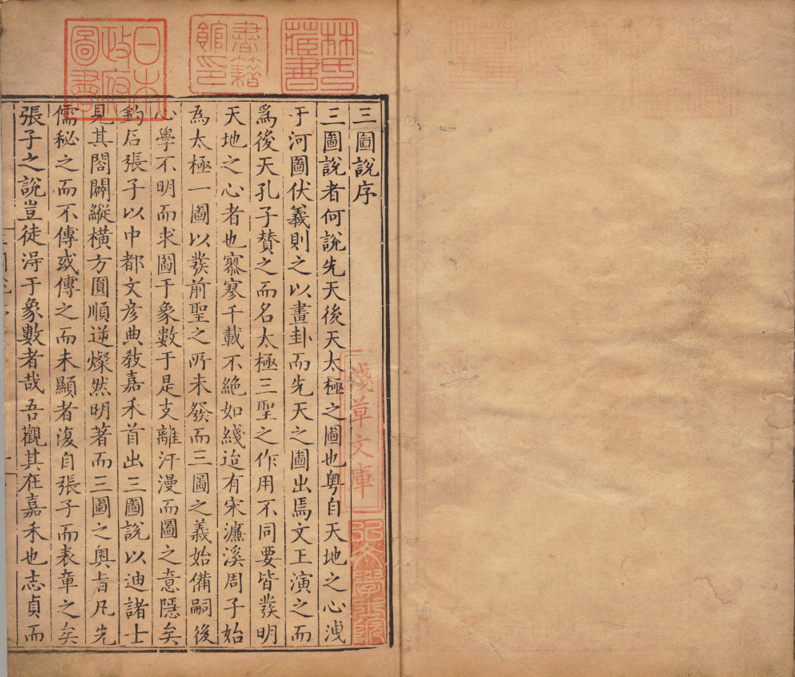 三圖說序
三圖說者何說先天後天太極之圖也粵自天地之心洩
于河圖伏羲則之以畫卦而先天之圖出焉文王演之而
爲後天孔子贊之而名太極三聖之作用不同要皆發明
天地之心者也寥寥千載不絶如綫迨有宋濂溪周子始
爲太極一圖以發前聖之所未發而三圖之義始備嗣後
心學不明而求圖于象數于是支離汗漫而圖之意隱矣
鈞后張子以中都文彦典敎嘉禾首出三圖說以迪諸士
見其閤闢縱橫方圓順逆燦然明著而三圖之奥旨凡先
儒秘之而不傳或傳之而未顯者復自張子而表章之矣
張子之說豈徒淂于象數者哉吾觀其在嘉禾也志貞而
林氏藏書
書籍館印
日本政府圖書
淺草文庫
弘文學士院